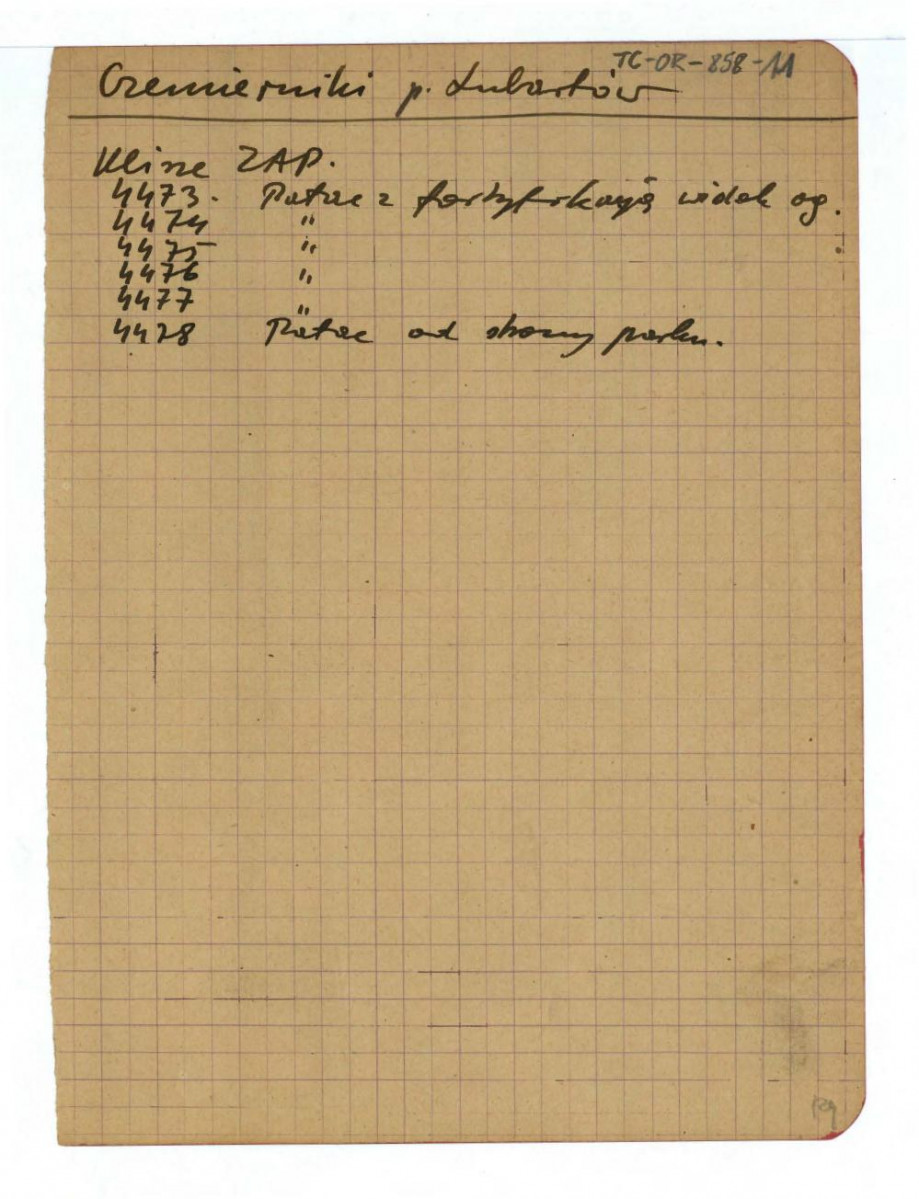 TC-OR-858-11
Czemierniki p. Lubartów
Klisze ZAP.
4473. Pałac z fortyfikacją widok og.
4474 "
4475 "
4476 "
4477 "
4478 Pałac od strony parku.